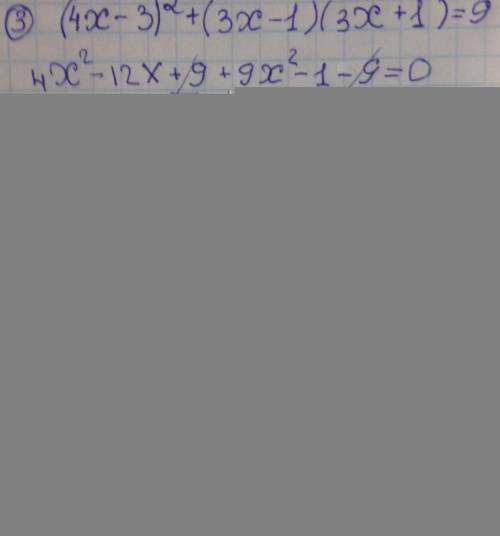 ③ (4x - 3)² + (3x - 1)(3x + 1) = 9
4x² - 12x + 9 + 9x² - 1 - 9 = 0